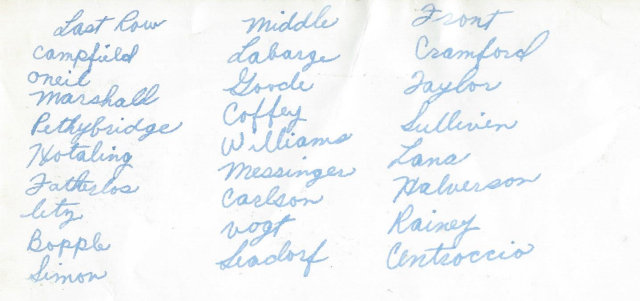 Last Row
Campfield
Oneil
Marshall
Pethybridge
Hotaling
Fatherlos
Betz
Bopple
Simon
Middle
Labarge
Goode
Coffey
Williams
Messinger
Carlson
Vogt
Seadorf
Front
Cramford
Taylor
Sulliven
Lana
Halverson
Rainey
Centroccio